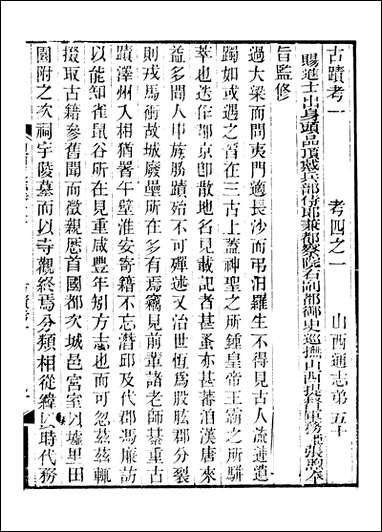 古蹟考一 考四之一 山西通志第五十
賜進士出身頭品頂戴兵部侍郎兼都察院右副都御史巡撫山西提督軍務張煦奉
旨監修
過大梁而問夷門適長沙而弔汨羅生不得見古人流連遺
躅如或遇之晉在三古上蓋神聖之所鍾皇帝王霸之所騈
萃也茲郡京卽散地名見載記者甚蚤亦甚蕃洎漢唐來
益多聞人甲族勝蹟殆不可殫述又治世恆爲股肱郡分裂
則戎馬衝故城廢壘所在多有焉竊見前輩諸老師綦重古
蹟澤州入相猶署午壁淮安寄籍不忘潛邱及代郡馮廉訪
以能知雀鼠谷所在見重咸豐年矧方志也而可忽茲輒
掇取古籍參舊聞而徵親歷首國都次城邑宮室以墟里田
園附之次祠宇陵墓而以寺觀終焉分類相從詧以時代務